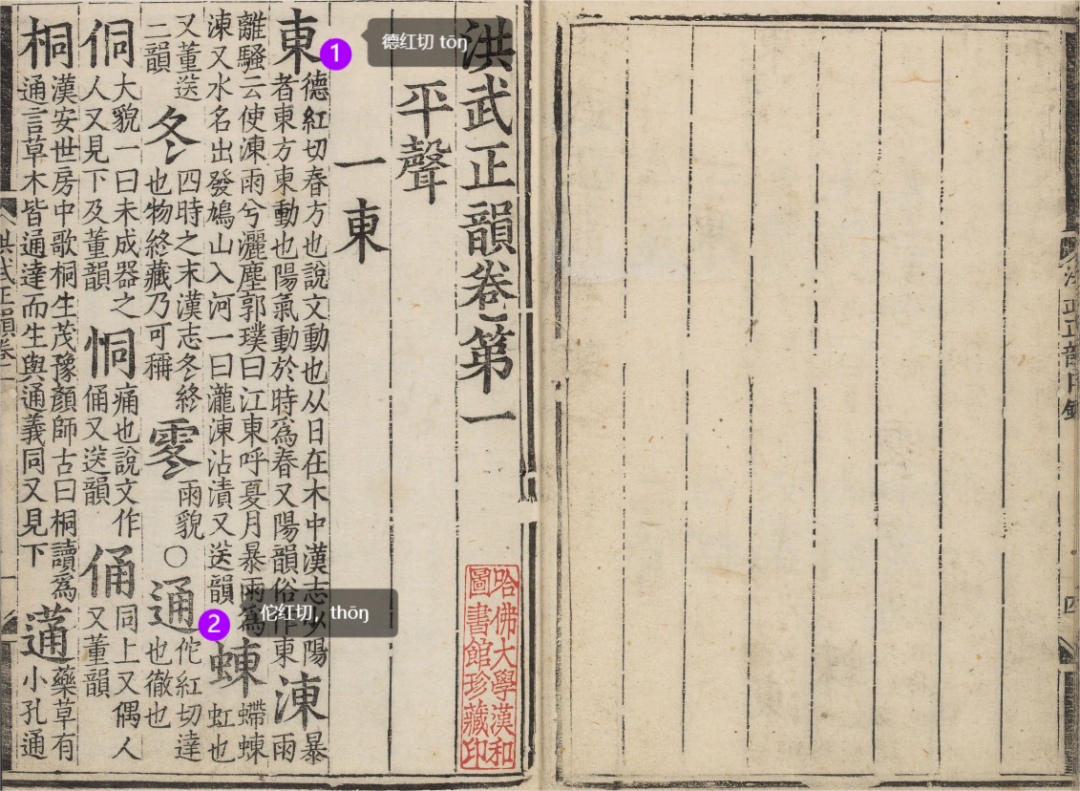 洪武正韻目錄
四
洪武正韻卷第一
哈佛大學漢和
圖書館珍藏印
平聲
一東
東 德紅切春方也說文動也从日在木中漢志少陽
者東方東動也陽氣動於時為春又陽韻俗作東 涷 暴
雨
離騷云使涷雨兮灑塵郭璞曰江東呼夏月暴雨為
涷又水名出發鳩山入河一曰瀧涷沾漬又送韻 蝀 螮蝀
虹也
又董送
二韻 冬 四時之末漢志冬終
也物終藏乃可稱 䨦 雨貌 ○ 通 佗紅切達
也徹也
侗 大貌一曰未成器之
人又見下及董韻 恫 痛也說文作
俑又送韻 俑 同上又偶人
又董韻
桐 漢安世房中歌桐生茂豫顏師古曰桐讀為
通言草木皆通達而生與通義同又見下 蓪 藥草有
小孔通
洪武正韻卷一
1 德红切 tōŋ
2 佗红切，thōŋ